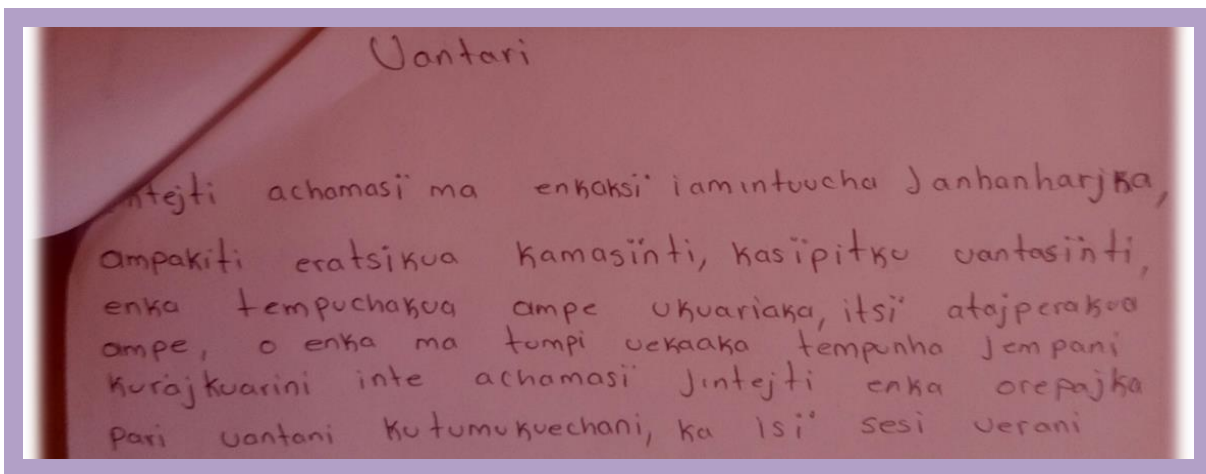 Uantari
achamasï ma enkaksï iamintuucha Janhanharjka,
ampakiti eratsikua kamasïnti, kasïpitku uantasïnti,
enka tempuchakua ampe ukuariaka, itsï atajperakua
ampe, o enka ma tumpi uekaaka tempunha jempani
kurajkuarini inte achamasï Jintejti enka orepajka
pari uantani kutumukuechani, ka isï sesi uerani